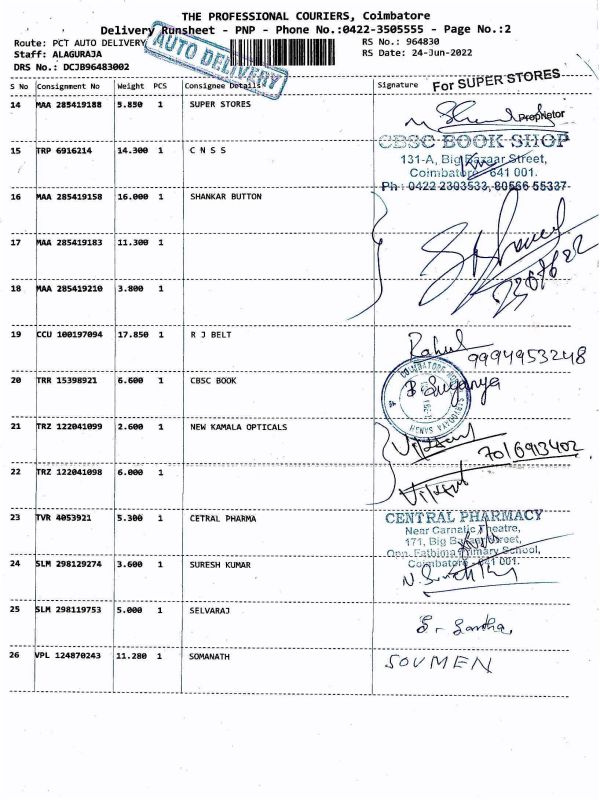 THE PROFESSIONAL COURIERS, Coimbatore
Delivery Runsheet - PNP - Phone No.:0422-3505555 - Page No.:2
Route: PCT AUTO DELIVERY
RS No.: 964830
Staff: ALAGURAJA
RS Date: 24-Jun-2022
DRS No.: DCJB96483002
AUTO DELIVERY
S No Consignment No Weight PCS Consignee Details Signature
For SUPER STORES
14 MAA 285419188 5.850 1 SUPER STORES
Proprietor
CBSC BOOK SHOP
15 TRP 6916214 14.300 1 C N S S
131-A, Big Bazaar Street,
Coimbatore - 641 001.
Ph : 0422 2303533, 80566 55337
16 MAA 285419158 16.000 1 SHANKAR BUTTON
17 MAA 285419183 11.300 1
18 MAA 285419210 3.800 1
19 CCU 100197094 17.850 1 R J BELT
Rahul
9994953248
20 TRR 15398921 6.600 1 CBSC BOOK
21 TRZ 122041099 2.600 1 NEW KAMALA OPTICALS
7016913402
22 TRZ 122041098 6.000 1
23 TVR 4053921 5.300 1 CETRAL PHARMA
CENTRAL PHARMACY
Near Carnatic Theatre,
171, Big Bazaar Street,
Opp. Fathima Primary School,
Coimbatore - 641 001.
24 SLM 298129274 3.600 1 SURESH KUMAR
25 SLM 298119753 5.000 1 SELVARAJ
26 VPL 124870243 11.280 1 SOMANATH
SOUMEN